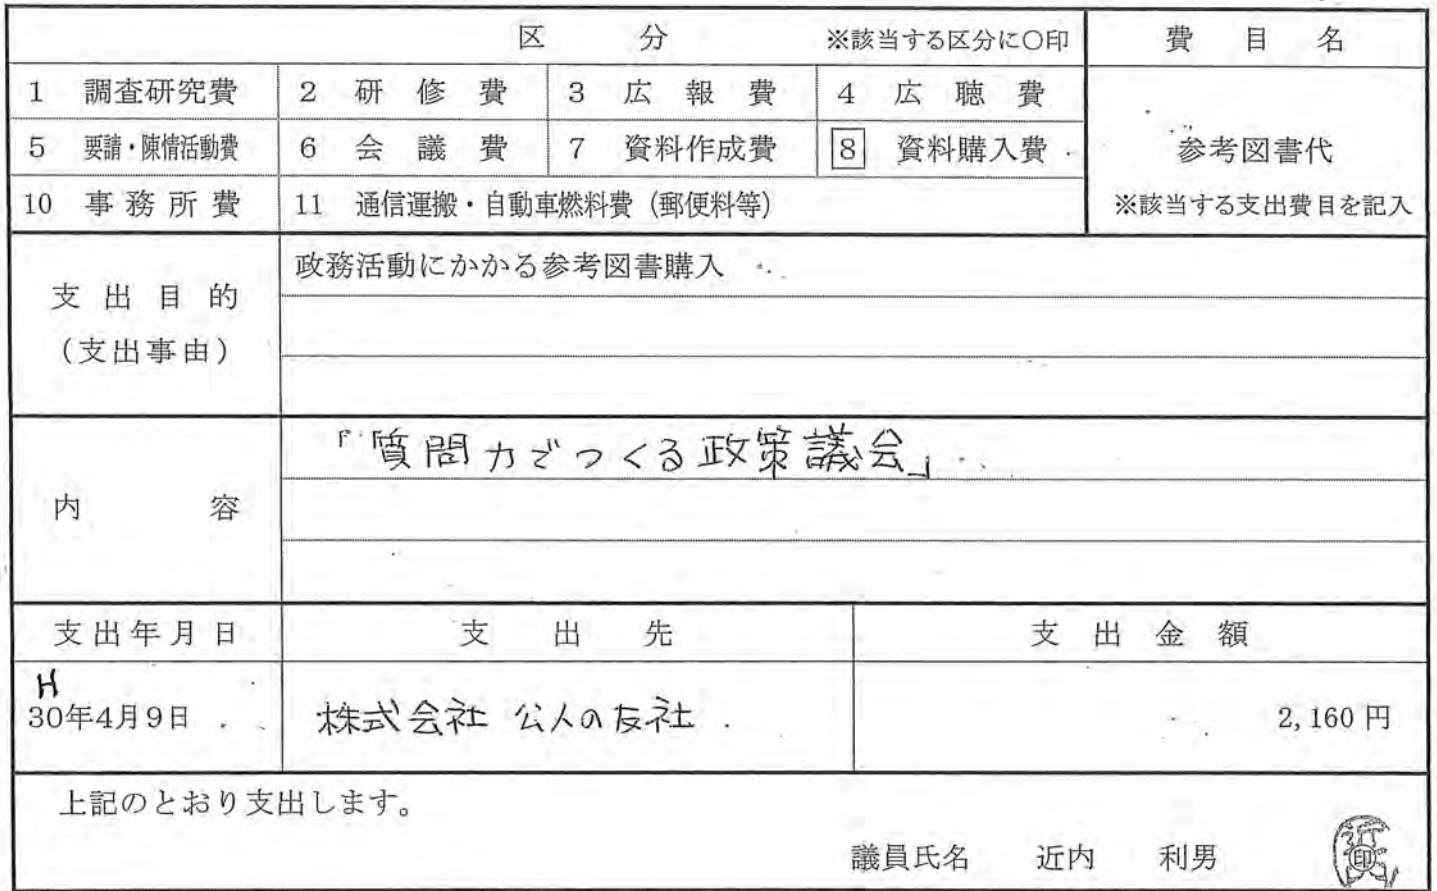 区 分 ※該当する区分に○印 費 目 名
1 調査研究費 2 研 修 費 3 広 報 費 4 広 聴 費
5 要請・陳情活動費 6 会 議 費 7 資料作成費 8 資料購入費 参考図書代
10 事 務 所 費 11 通信運搬・自動車燃料費（郵便料等） ※該当する支出費目を記入
支 出 目 的
（支出事由）
政務活動にかかる参考図書購入
内 容
『質問力でつくる政策議会』
支出年月日 支 出 先 支 出 金 額
H
30年4月9日 株式会社 公人の友社 2,160円
上記のとおり支出します。
議員氏名 近内 利男
近
印